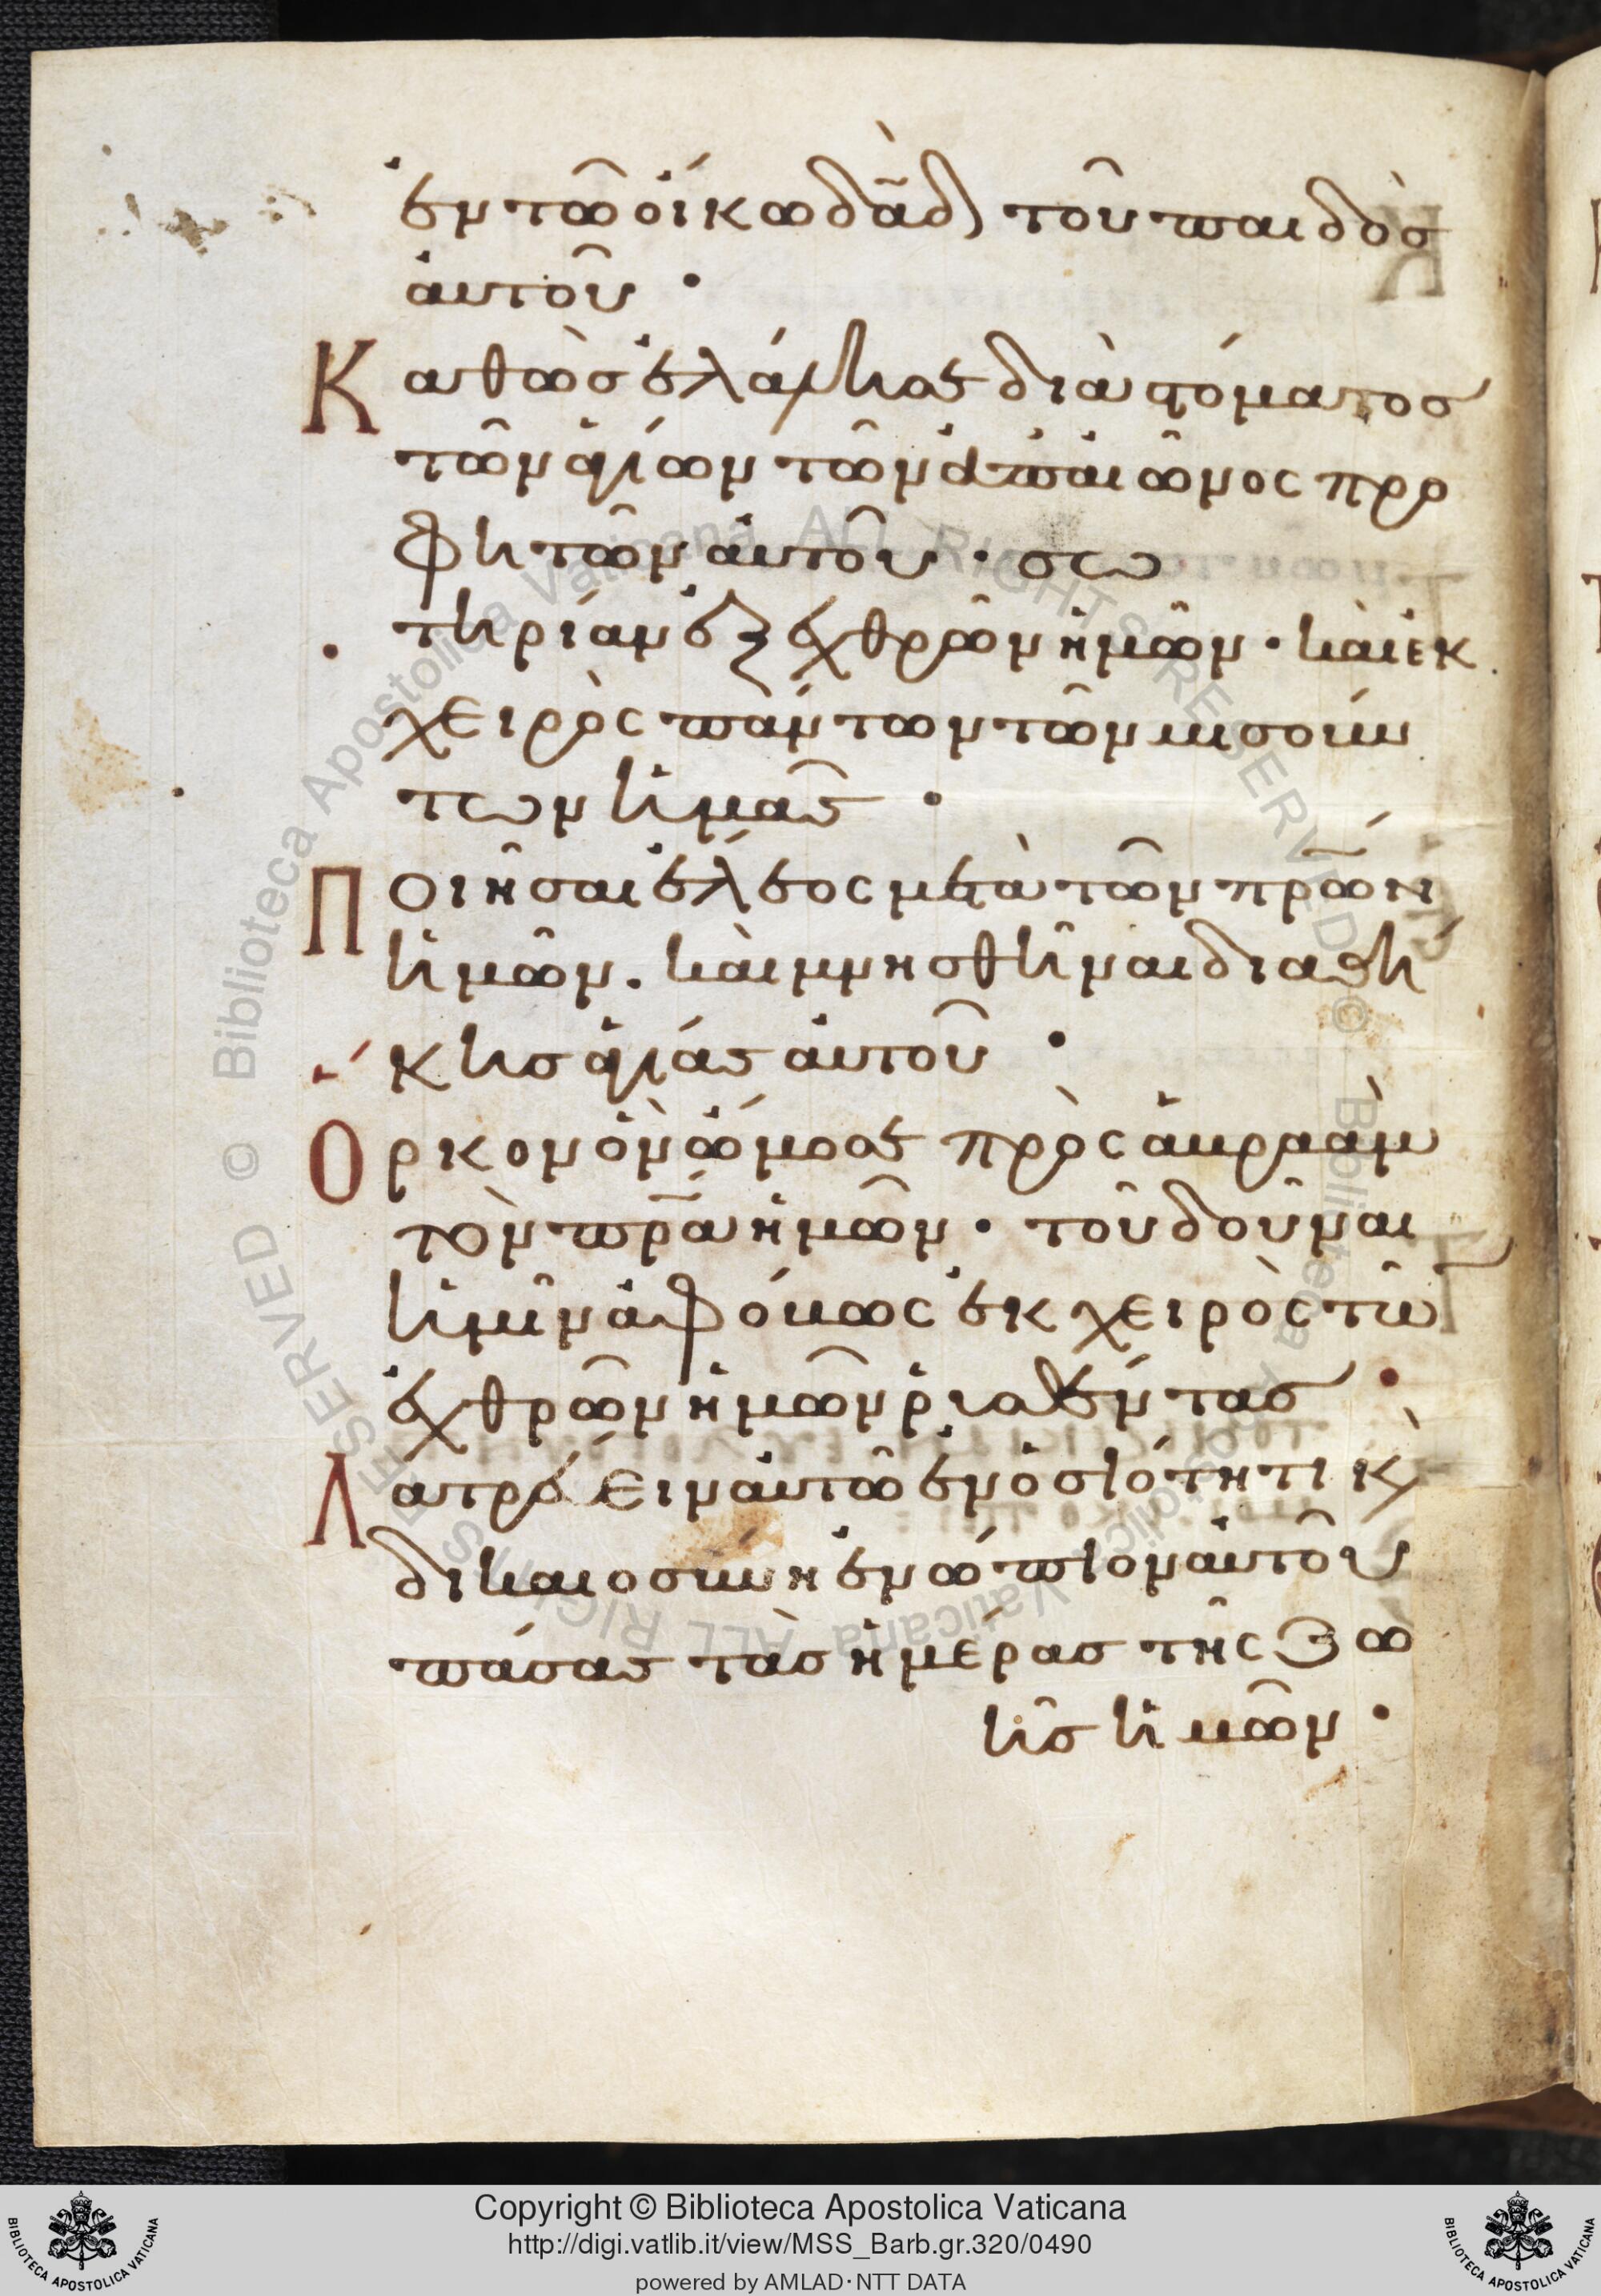 ἐν τῶ οἴκω δᾱδ̀ τοῦ παιδὸσ
ἀυτοῦ ·
Καθὼσ ἐλάλησε διὰ στόματοσ
τῶν ἁγίων τῶν ἀπ' αἰῶνος προ
φητῶν ἀυτοῦ · σω
τηρίαν ἐξ ἐχθρῶν ἡμῶν · κὰι ἐκ
χειρὸς πάντων τῶν μισούν
των ἡμᾶσ ·
Ποιῆσαι ἔλεος μετὰ τῶν πρ̅ων
ἡμῶν . κὰι μνησθῆναι διαθή
κησ ἁγίασ ἀυτοῦ ·
Ορκον ὃν ὤμοσε πρὸς ἀβραὰμ
τὸν πρ̅α ἡμῶν · τοῦ δοῦναι
ἡμῖν ἀφόβως ἐκ χειρὸς τῶ
ἐχθρῶν ἡμῶν ῥυσθέντασ ·
Λατρεύειν ἀυτῶ ἐν ὁσιότητι κ̀
δικαιοσύνη ἐνώπιον ἀυτοῦ
πάσασ τὰσ ἡμέρασ τῆς ζω
ῆσ ἡμῶν ·
Copyright © Biblioteca Apostolica Vaticana
http://digi.vatlib.it/view/MSS_Barb.gr.320/0490
powered by AMLAD·NTT DATA
BIBLIOTECA APOSTOLICA VATICANA
BIBLIOTECA APOSTOLICA VATICANA
© Biblioteca Apostolica Vaticana ALL RIGHTS RESERVED
© Biblioteca Apostolica Vaticana ALL RIGHTS RESERVED